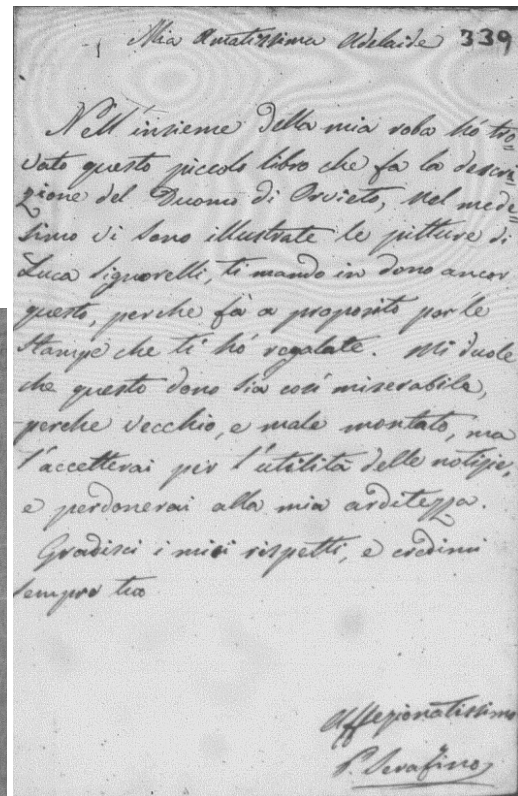 Mia Amatissima Adelaide 339
Nell'insieme della mia roba hó tro
vato questo piccolo libro che fa la descri
zione del Duomo di Orvieto, nel mede
simo vi sono illustrate le pitture di
Luca Signorelli, ti mando in dono ancor
questo, perche fà a proposito por le
Stampe che ti hó regalate. Mi duole
che questo dono sia così miserabile,
perche vecchio, e male montato, ma
l'accetterai per l'utilità delle notizie,
e perdonerai alla mia arditezza.
Gradisci i miei rispetti, e credimi
sempre tuo
Affezionatissimo
P. Serafino